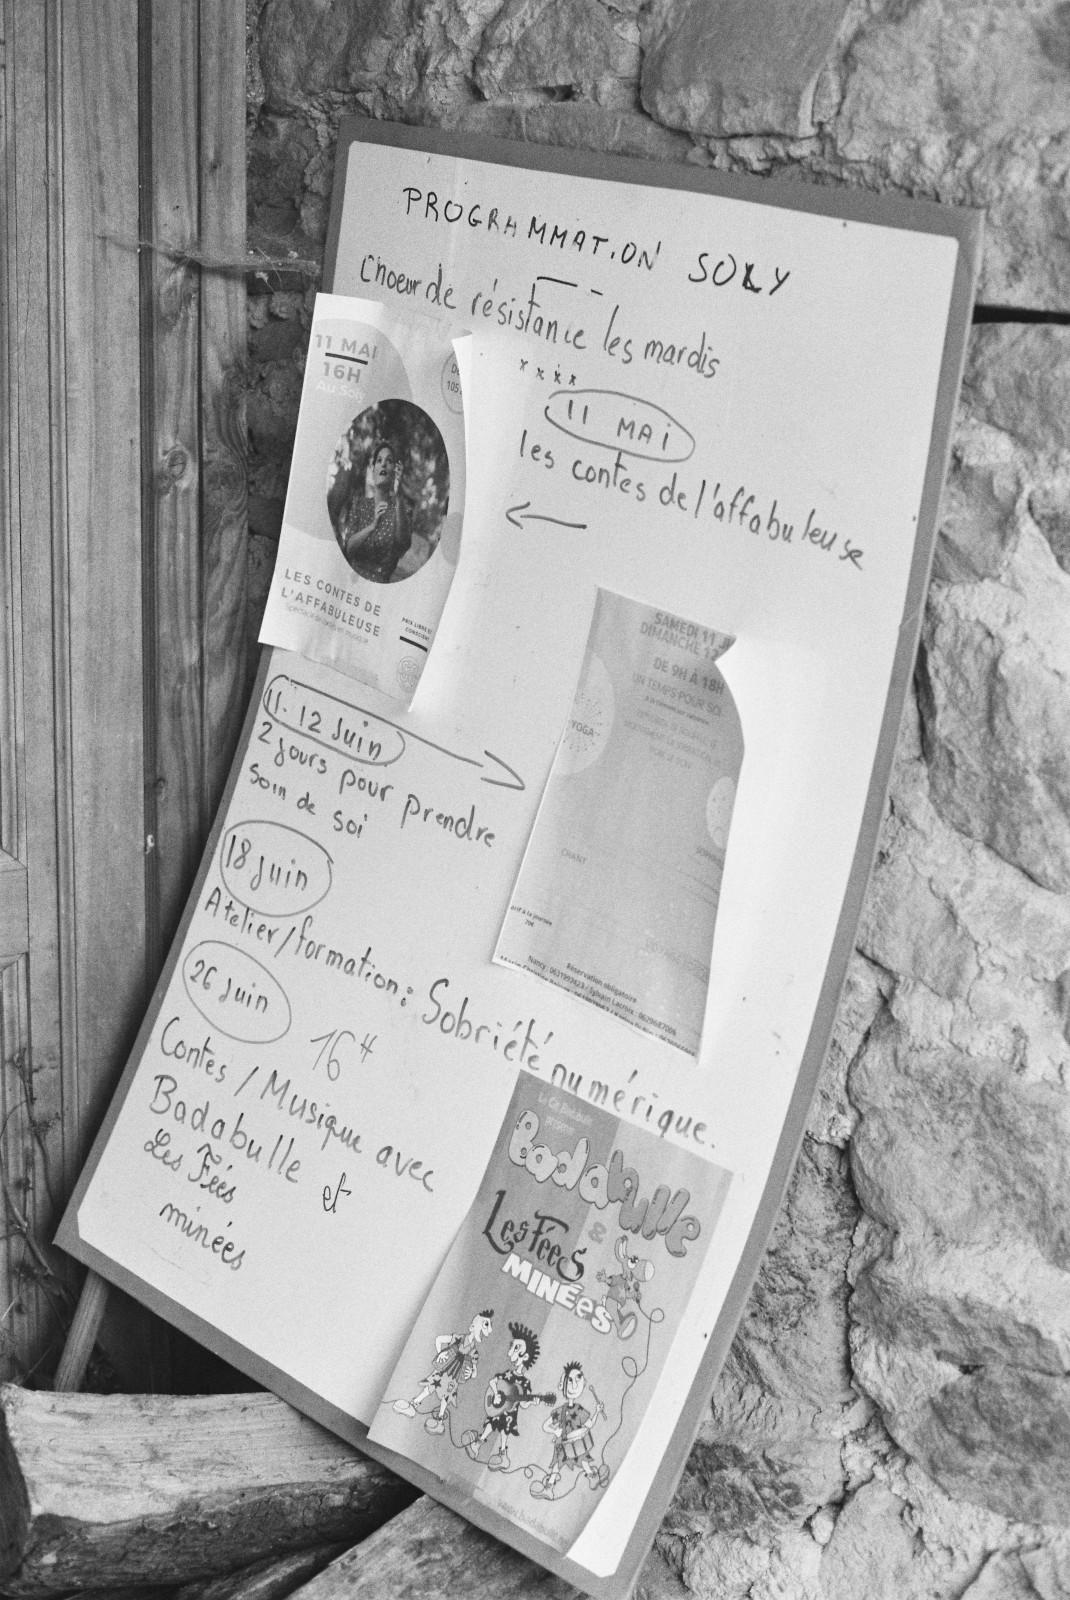 PROGRAMMATION SOLY
Choeur de résistance les mardis
11 MAI
les contes de l'affabuleuse
11 MAI
16H
Au Soly
LES CONTES DE
L'AFFABULEUSE
PRIX LIBRE ET
CONSCIENT
11-12 Juin
2 jours pour prendre
soin de soi
SAMEDI 11 
DIMANCHE 12
DE 9H À 18H
UN TEMPS POUR SOI
YOGA
CHANT
20€
Réservation obligatoire
Nancy : 0631993423 / Sylvain Lacroix : 0629687006
18 Juin
Atelier/formation : Sobriété numérique.
26 Juin
16H
Contes / Musique avec
Badabulle et
Les Fées
minées
Badabulle
&
Les Fées
MINÉES